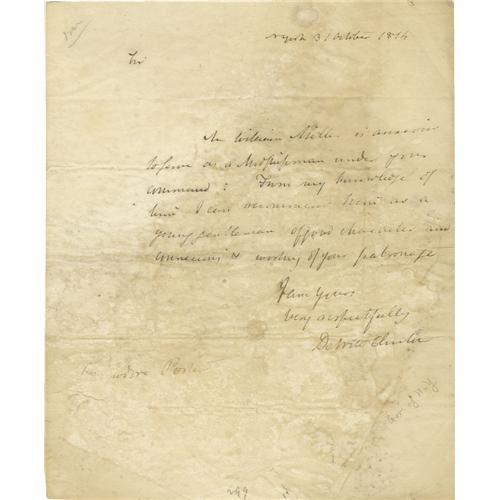 NYork 31 October 1814
Sir
Mr William Miller is anxious
to serve as a Midshipman under your
command: From my knowledge of
him I can recommend him as a
young gentleman of good character and
connexions & worthy of your patronage
I am Yours
Very respectfully
DeWitt Clinton
Porter
Gov of N.Y